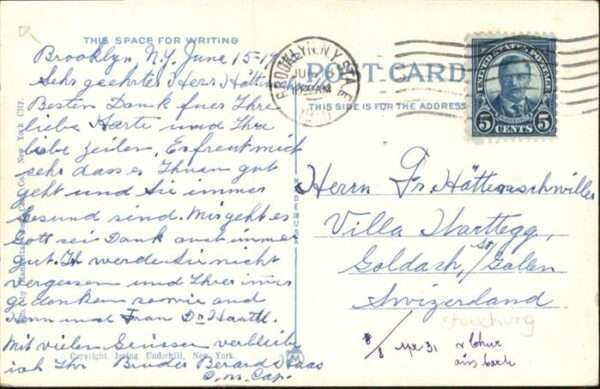 THIS SPACE FOR WRITING
Brooklyn, N.Y. June 15-19
Sehr geehrter Herr Hätten
Besten Dank fuer Ihre
liebe Karte und Ihre
liebe Zeilen. Es freut mich
sehr dass es Ihnen gut
geht und Sie immer
Gesund sind. Mir geht es
Gott sei Dank auch immer
gut. Ich werde Sie nicht
vergessen und Ihrer
gedenken sowie
und Frau Dr
Mit vielen Grüssen verbleib
ich Ihr Bruder Berard Haas
O.M.Cap.
Copyright, Irving Underhill, New York.
BROOKLYN, N.Y.
POST CARD
THIS SIDE IS FOR THE ADDRESS
UNITED STATES POSTAGE
5 CENTS 5
Herrn Fr. Hättenschwiller
Villa Harttegg,
Goldach, St/Galen
Swizerland